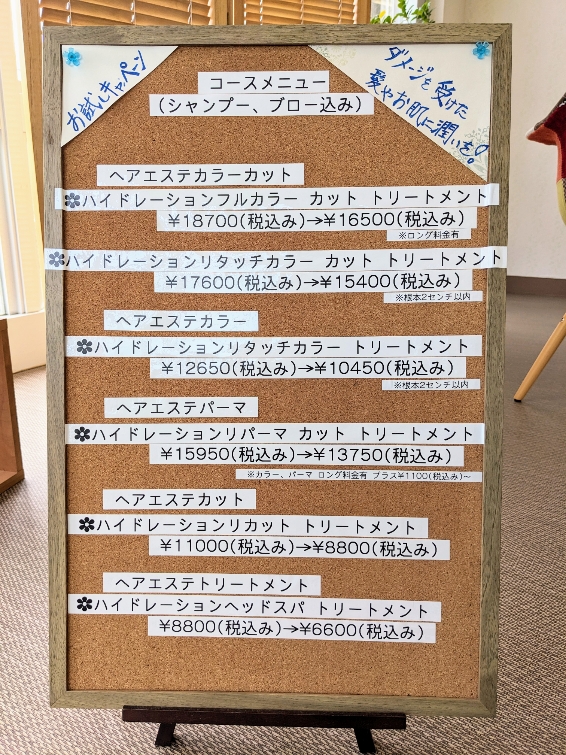 お試しキャペン
ダメージを受けた
髪やお肌に潤いを!
コースメニュー
(シャンプー、ブロー込み)
ヘアエステカラーカット
ハイドレーションフルカラー カット トリートメント
¥18700(税込み)→¥16500(税込み)
※ロング料金有
ハイドレーションリタッチカラー カット トリートメント
¥17600(税込み)→¥15400(税込み)
※根本2センチ以内
ヘアエステカラー
ハイドレーションリタッチカラー トリートメント
¥12650(税込み)→¥10450(税込み)
※根本2センチ以内
ヘアエステパーマ
ハイドレーションリパーマ カット トリートメント
¥15950(税込み)→¥13750(税込み)
※カラー、パーマ ロング料金有 プラス¥1100(税込み)~
ヘアエステカット
ハイドレーションリカット トリートメント
¥11000(税込み)→¥8800(税込み)
ヘアエステトリートメント
ハイドレーションヘッドスパ トリートメント
¥8800(税込み)→¥6600(税込み)